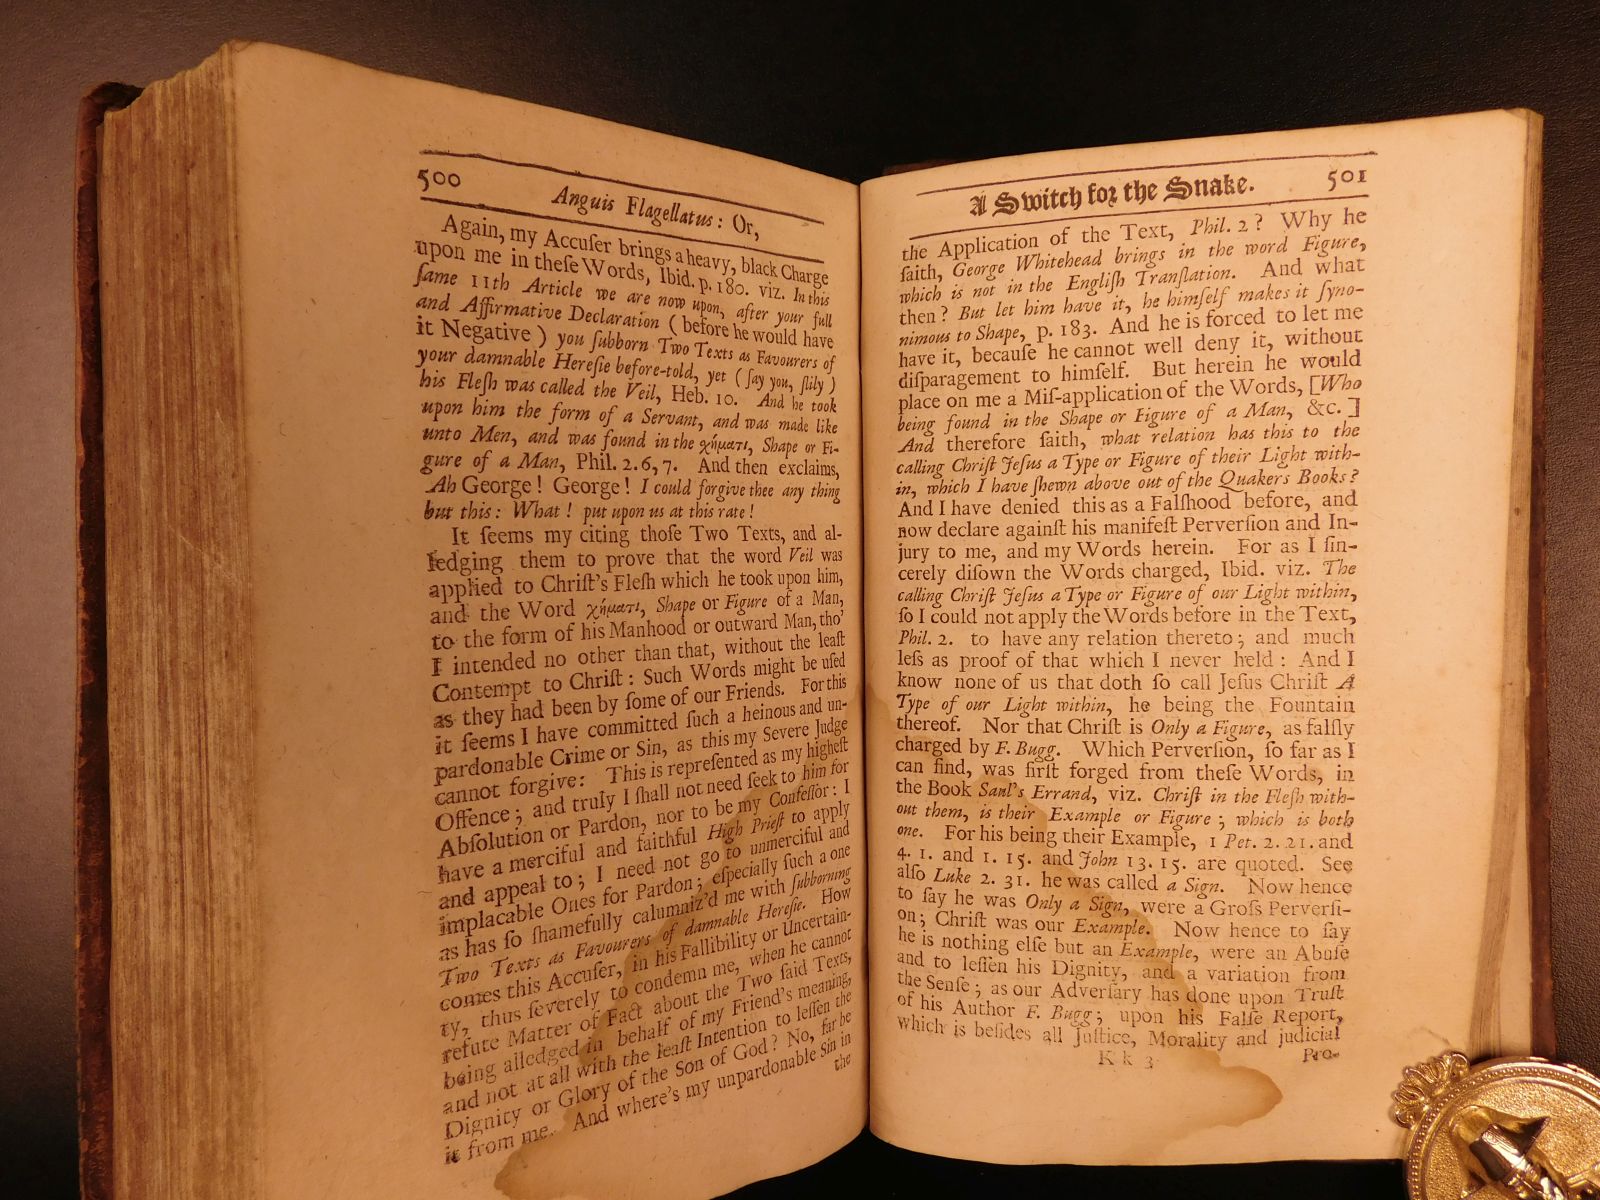 500
Anguis Flagellatus: Or,
Again, my Accuſer brings a heavy, black Charge
upon me in theſe Words, Ibid. p. 180. viz. In this
ſame 11th Article we are now upon, after your full
and Affirmative Declaration (before he would have
it Negative) you ſubborn Two Texts as Favourers of
your damnable Hereſie before-told, yet (ſay you, ſlily)
his Fleſh was called the Veil, Heb. 10. And he took
upon him the form of a Servant, and was made like
unto Men, and was found in the χήματι, Shape or Fi-
gure of a Man, Phil. 2. 6, 7. And then exclaims,
Ah George! George! I could forgive thee any thing
but this: What! put upon us at this rate!
It ſeems my citing thoſe Two Texts, and al-
ledging them to prove that the word Veil was
applied to Chriſt's Fleſh which he took upon him,
and the Word χήματι, Shape or Figure of a Man,
to the form of his Manhood or outward Man, tho'
I intended no other than that, without the leaſt
Contempt to Chriſt: Such Words might be uſed
as they had been by ſome of our Friends. For this
it ſeems I have committed ſuch a heinous and un-
pardonable Crime or Sin, as this my Severe Judge
cannot forgive: This is repreſented as my higheſt
Offence; and truly I ſhall not need ſeek to him for
Abſolution or Pardon, nor to be my Confeſſor: I
have a merciful and faithful High Prieſt to apply
and appeal to; I need not go to unmerciful and
implacable Ones for Pardon; eſpecially ſuch a one
as has ſo ſhamefully calumniz'd me with ſubborning
Two Texts as Favourers of damnable Hereſie. How
comes this Accuſer, in his Fallibility or Uncertain-
ty, thus ſeverely to condemn me, when he cannot
refute Matter of Fact about the Two ſaid Texts,
being alledged in behalf of my Friend's meaning,
and not at all with the leaſt Intention to leſſen the
Dignity or Glory of the Son of God? No, far be
it from me. And where's my unpardonable Sin in
the
A Switch for the Snake.
501
the Application of the Text, Phil. 2? Why he
ſaith, George Whitehead brings in the word Figure,
which is not in the Engliſh Tranſlation. And what
then? But let him have it, he himſelf makes it ſyno-
nimous to Shape, p. 183. And he is forced to let me
have it, becauſe he cannot well deny it, without
diſparagement to himſelf. But herein he would
place on me a Miſ-application of the Words, [Who
being found in the Shape or Figure of a Man, &c.]
And therefore ſaith, what relation has this to the
calling Chriſt Jeſus a Type or Figure of their Light with-
in, which I have ſhewn above out of the Quakers Books?
And I have denied this as a Falſhood before, and
now declare againſt his manifeſt Perverſion and In-
jury to me, and my Words herein. For as I ſin-
cerely diſown the Words charged, Ibid. viz. The
calling Chriſt Jeſus a Type or Figure of our Light within,
ſo I could not apply the Words before in the Text,
Phil. 2. to have any relation thereto; and much
leſs as proof of that which I never held: And I
know none of us that doth ſo call Jeſus Chriſt A
Type of our Light within, he being the Fountain
thereof. Nor that Chriſt is Only a Figure, as falſly
charged by F. Bugg. Which Perverſion, ſo far as I
can find, was firſt forged from theſe Words, in
the Book Saul's Errand, viz. Chriſt in the Fleſh with-
out them, is their Example or Figure; which is both
one. For his being their Example, 1 Pet. 2. 21. and
4. 1. and 1. 15. and John 13. 15. are quoted. See
alſo Luke 2. 31. he was called a Sign. Now hence
to ſay he was Only a Sign, were a Groſs Perverſi-
on; Chriſt was our Example. Now hence to ſay
he is nothing elſe but an Example, were an Abuſe
and to leſſen his Dignity, and a variation from
the Senſe; as our Adverſary has done upon Truſt
of his Author F. Bugg; upon his Falſe Report,
which is beſides all Juſtice, Morality and judicial
K k 3
Pro-